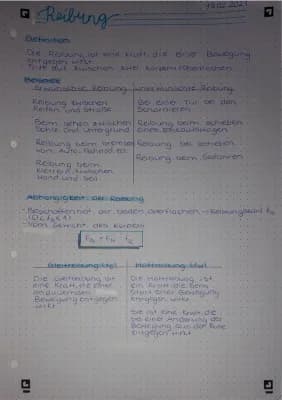 Reibung
Definition
Die Reibung ist eine Kraft, die einer Bewegung
entgegen wirkt.
Tritt auf zwischen zwei Körperoberflächen
Beispiele
Erwünschte Reibung
unerwünschte Reibung
Reibung zwischen
Reifen und Straße
Bei eine Tür bei den
Scharnieren
Beim Gehen zwischen
Schuh und Untergrund
Reibung beim schieben
eines
Reibung beim bremsen
vom Auto, Fahrrad etc.
Reibung bei
Reibung beim
Klettern zwischen
Hand und Seil
Reibung beim
Abhängigkeit der Reibung
Beschaffenheit der beiden Oberflächen → Reibungszahl
Vom Gewicht des Körpers
Gleitreibung
Haftreibung
Die Gleitreibung ist
eine Kraft, die einer
andauernden
Bewegung entgegen
wirkt
Die Haftreibung ist
ein Kraft die beim
Start einer Bewegung
entgegen wirkt
Sie ist eine Kraft, die
bei einer Änderung der
Bewegung aus der Ruhe
entgegen wirkt